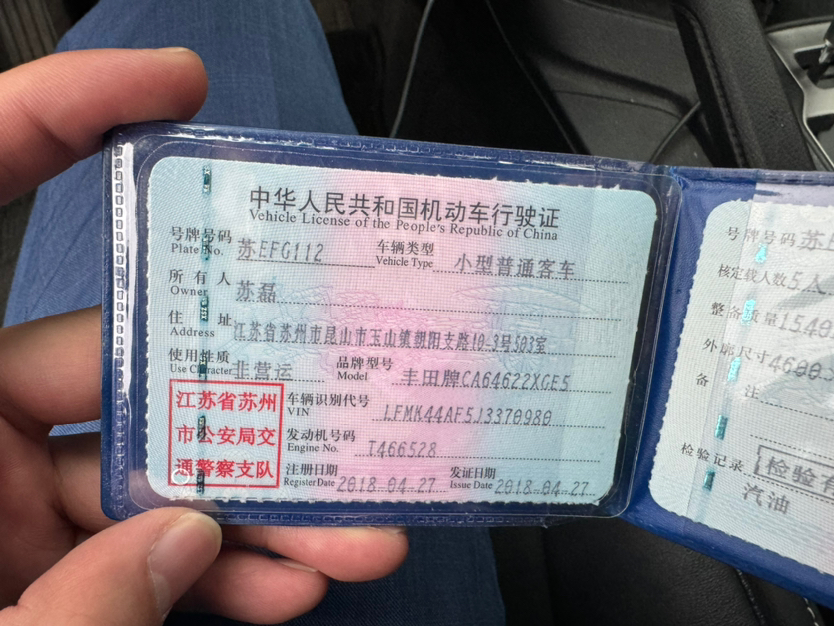 中华人民共和国机动车行驶证
Vehicle License of the People's Republic of China
号牌号码 苏EFG112 车辆类型 小型普通客车
Plate No. Vehicle Type
所有人 苏磊
Owner
住址 江苏省苏州市昆山市玉山镇朝阳支路10-3号503室
Address
使用性质 非营运 品牌型号 丰田牌CA64622XGE5
Use Character Model
江苏省苏州
市公安局交
通警察支队
车辆识别代号 LFMK44AF5J3370980
VIN
发动机号码 T466528
Engine No.
注册日期 2018-04-27 发证日期 2018-04-27
Register Date Issue Date
号牌号码 苏
核定载人数 5人
整备质量 1540
外廓尺寸 4600
备注
检验记录 检验有
汽油